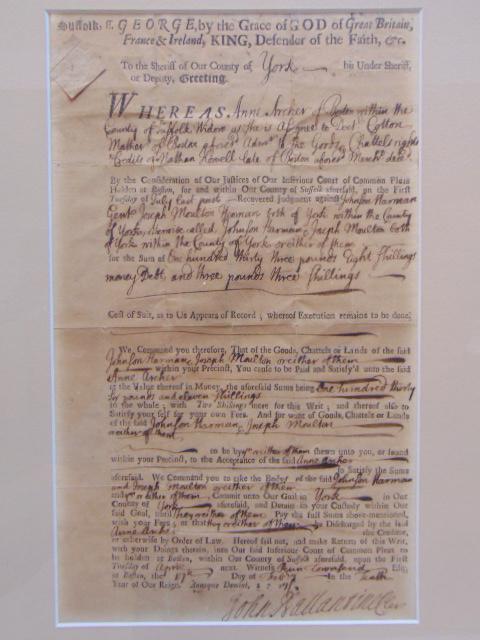 Suffolk, ss. GEORGE, by the Grace of GOD of Great Britain,
France & Ireland, KING, Defender of the Faith, &c.
To the Sheriff of Our County of York his Under Sheriff,
or Deputy, Greeting.
WHEREAS Anne Archer of Boston within the
County of Suffolk Widow as she is Assignee to Doct Cotton
Mather of Boston afores Admr to the Goods Chattels rights
& Credits of Nathan Howell late of Boston afores Mercht decd
By the Consideration of Our Justices of Our Inferiour Court of Common Pleas
Holden at Boston, for and within Our County of Suffolk aforesaid, on the First
Tuesday of July last past Recovered Judgment against Johnson Harman
Gent Joseph Moulton Yeoman both of York within the County
of York, otherwise called Johnson Harman, Joseph Moulton both
of York within the County of York or either of them
for the Sum of One hundred thirty three pounds Eight Shillings
money Debt and three pounds three Shillings
Cost of Suit, as to Us Appears of Record; whereof Execution remains to be done,
We Command you therefore, That of the Goods, Chattels or Lands of the said
Johnson Harman & Joseph Moulton or either of them
within your Precinct, You cause to be Paid and Satisfy'd unto the said
Anne Archer
at the Value thereof in Money, the aforesaid Sums being One hundred thirty
six pounds and eleven Shillings
in the whole; with Two Shillings more for this Writ; and thereof also to
Satisfy your self for your own Fees. And for want of Goods, Chattels or Lands
of the said Johnson Harman & Joseph Moulton
or either of them
to be by or either of them shewn unto you, or found
within your Precinct, to the Acceptance of the said Anne Archer
to Satisfy the Sums
aforesaid. We Command you to take the Body of the said Johnson Harman
and Joseph Moulton or either of them
and or either of them, Commit unto Our Goal in York in Our
County of York aforesaid, and Detain in your Custody within Our
said Goal, until they or either of them Pay the full Sums above-mentioned,
with your Fees; or that they or either of them be Discharged by the said
Anne Archer the Creditor,
or otherwise by Order of Law. Hereof fail not, and make Return of this Writ,
with your Doings therein, into Our said Inferiour Court of Common Pleas to
be holden at Boston, within Our County of Suffolk aforesaid, upon the First
Tuesday of April next. Witness Penn Townsend Esq;
at Boston, the Day of In the Tenth
Year of Our Reign. Annoque Domini,
John Ballantine Cler